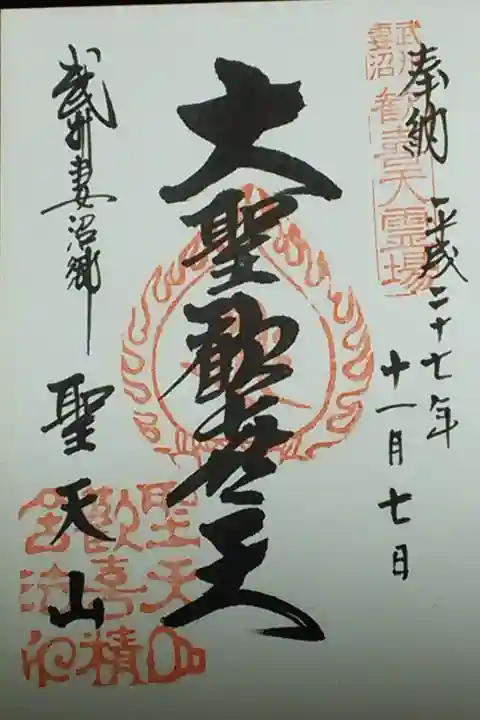 武州
妻沼
歓喜天霊場
奉納
平成二十七年
十一月七日
大聖歓喜天
武州妻沼郷
聖天山
聖天山
歓喜積